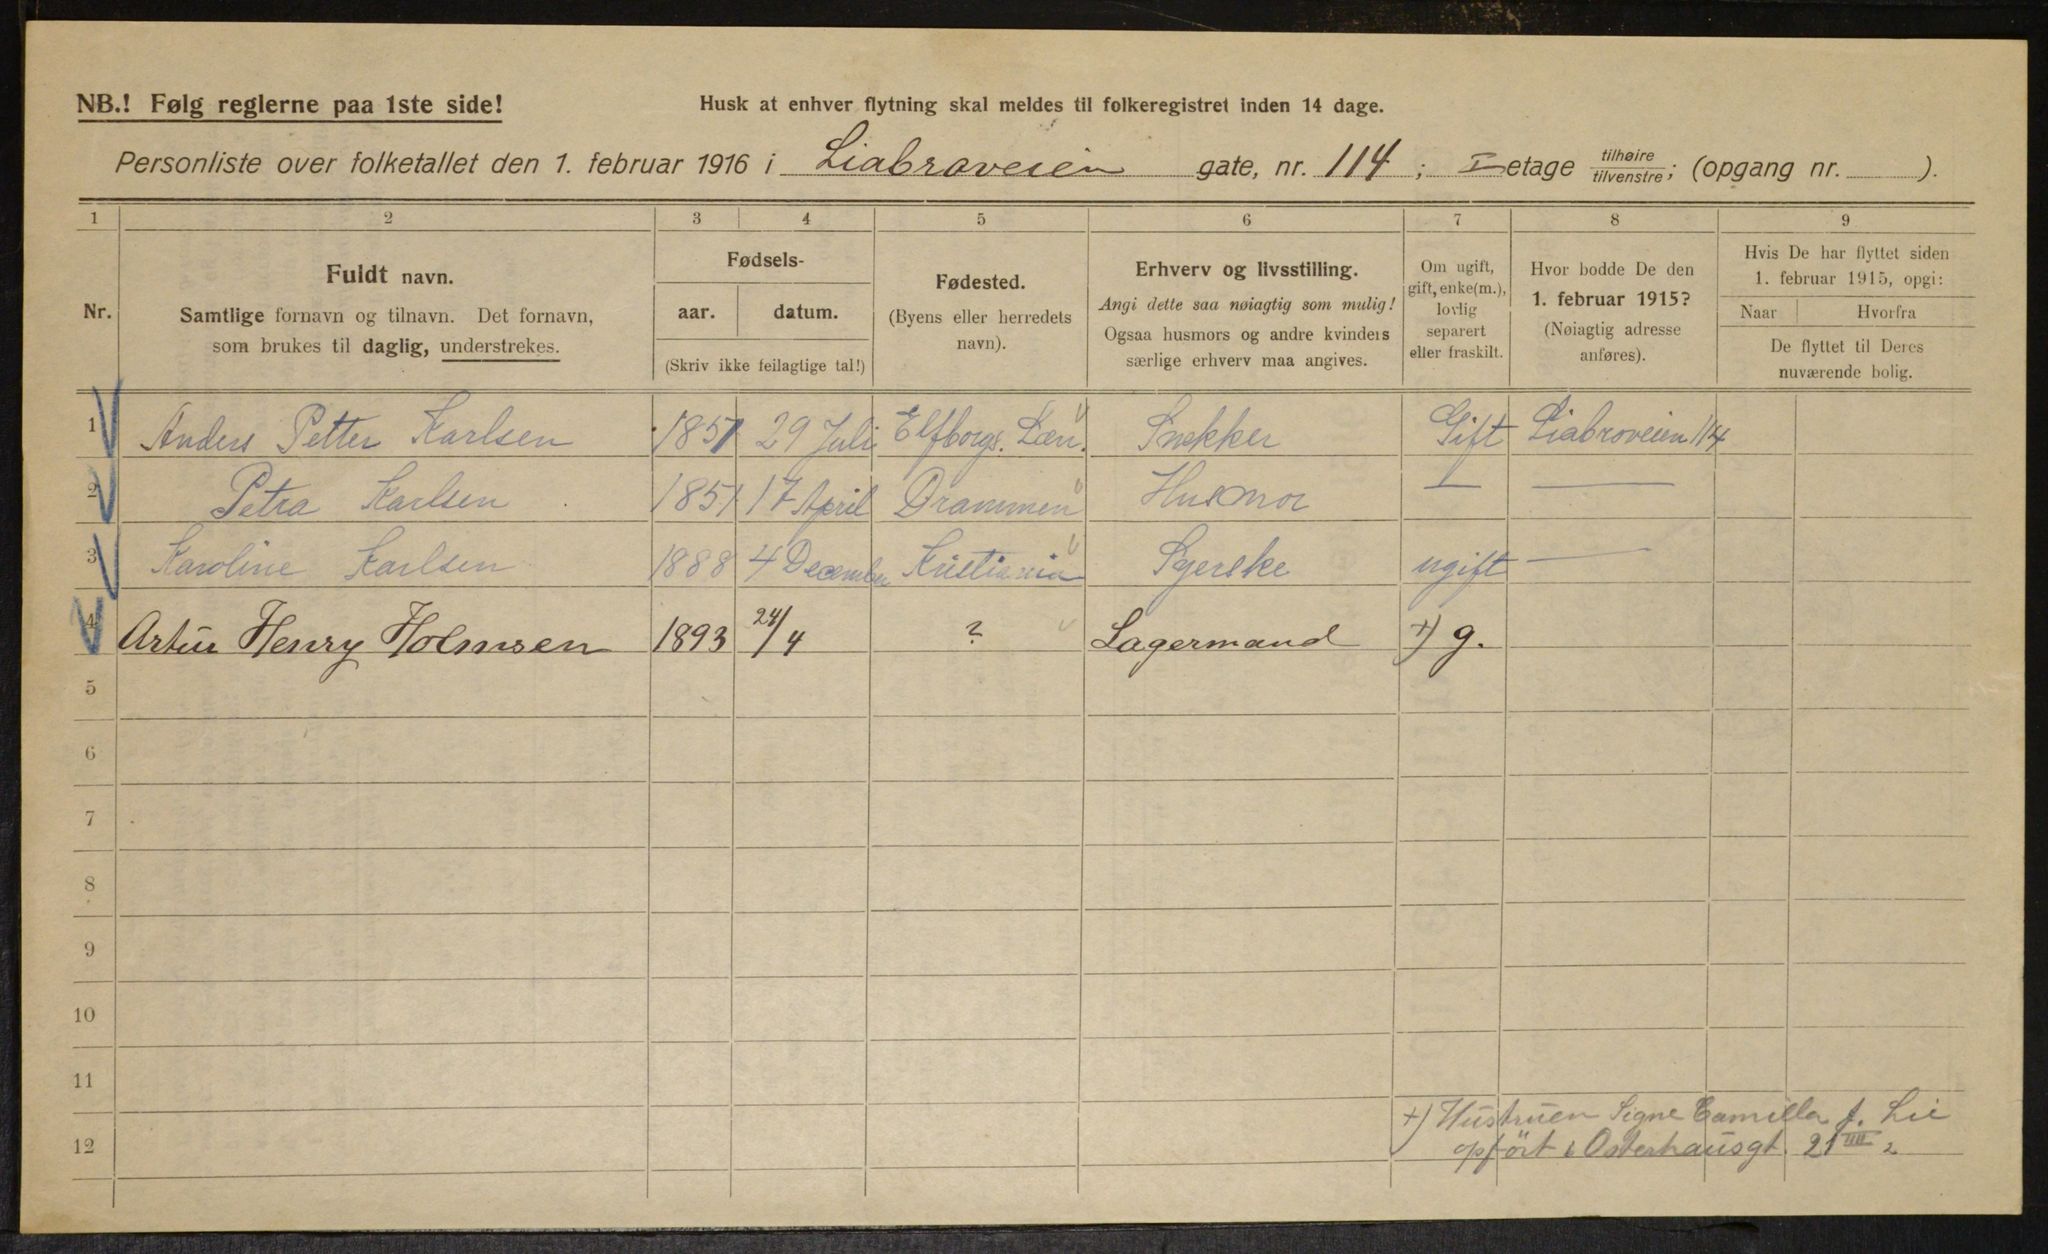 NB.! Følg reglerne paa 1ste side!
Husk at enhver flytning skal meldes til folkeregistret inden 14 dage.
Personliste over folketallet den 1. februar 1916 i Liabroveien gate, nr. 114; I etage tilhøire tilvenstre; (opgang nr. ).
1 2 3 4 5 6 7 8 9
Nr.
Fuldt navn.
Samtlige fornavn og tilnavn. Det fornavn,
som brukes til daglig, understrekes.
Fødsels-
aar. datum.
(Skriv ikke feilagtige tal!)
Fødested.
(Byens eller herredets
navn).
Erhverv og livsstilling.
Angi dette saa nøiagtig som mulig!
Ogsaa husmors og andre kvinders
særlige erhverv maa angives.
Om ugift,
gift, enke(m.),
lovlig
separert
eller fraskilt.
Hvor bodde De den
1. februar 1915?
(Nøiagtig adresse
anføres).
Hvis De har flyttet siden
1. februar 1915, opgi:
Naar Hvorfra
De flyttet til Deres
nuværende bolig.
1 Anders Petter Karlsen 1851 29 Juli Elfborgs. Læn. Snekker Gift Liabroveien 114
2 Petra Karlsen 1851 17 April Drammen Husmor — —
3 Karoline Karlsen 1888 4 December Kristiania Syerske ugift —
4 Artur Henry Holmsen 1893 24/4 ? Lagermand +) g.
5
6
7
8
9
10
11
12
+) Hustruen Signe Camilla f. Lie
opført i Osterhausgt. 21 III 2